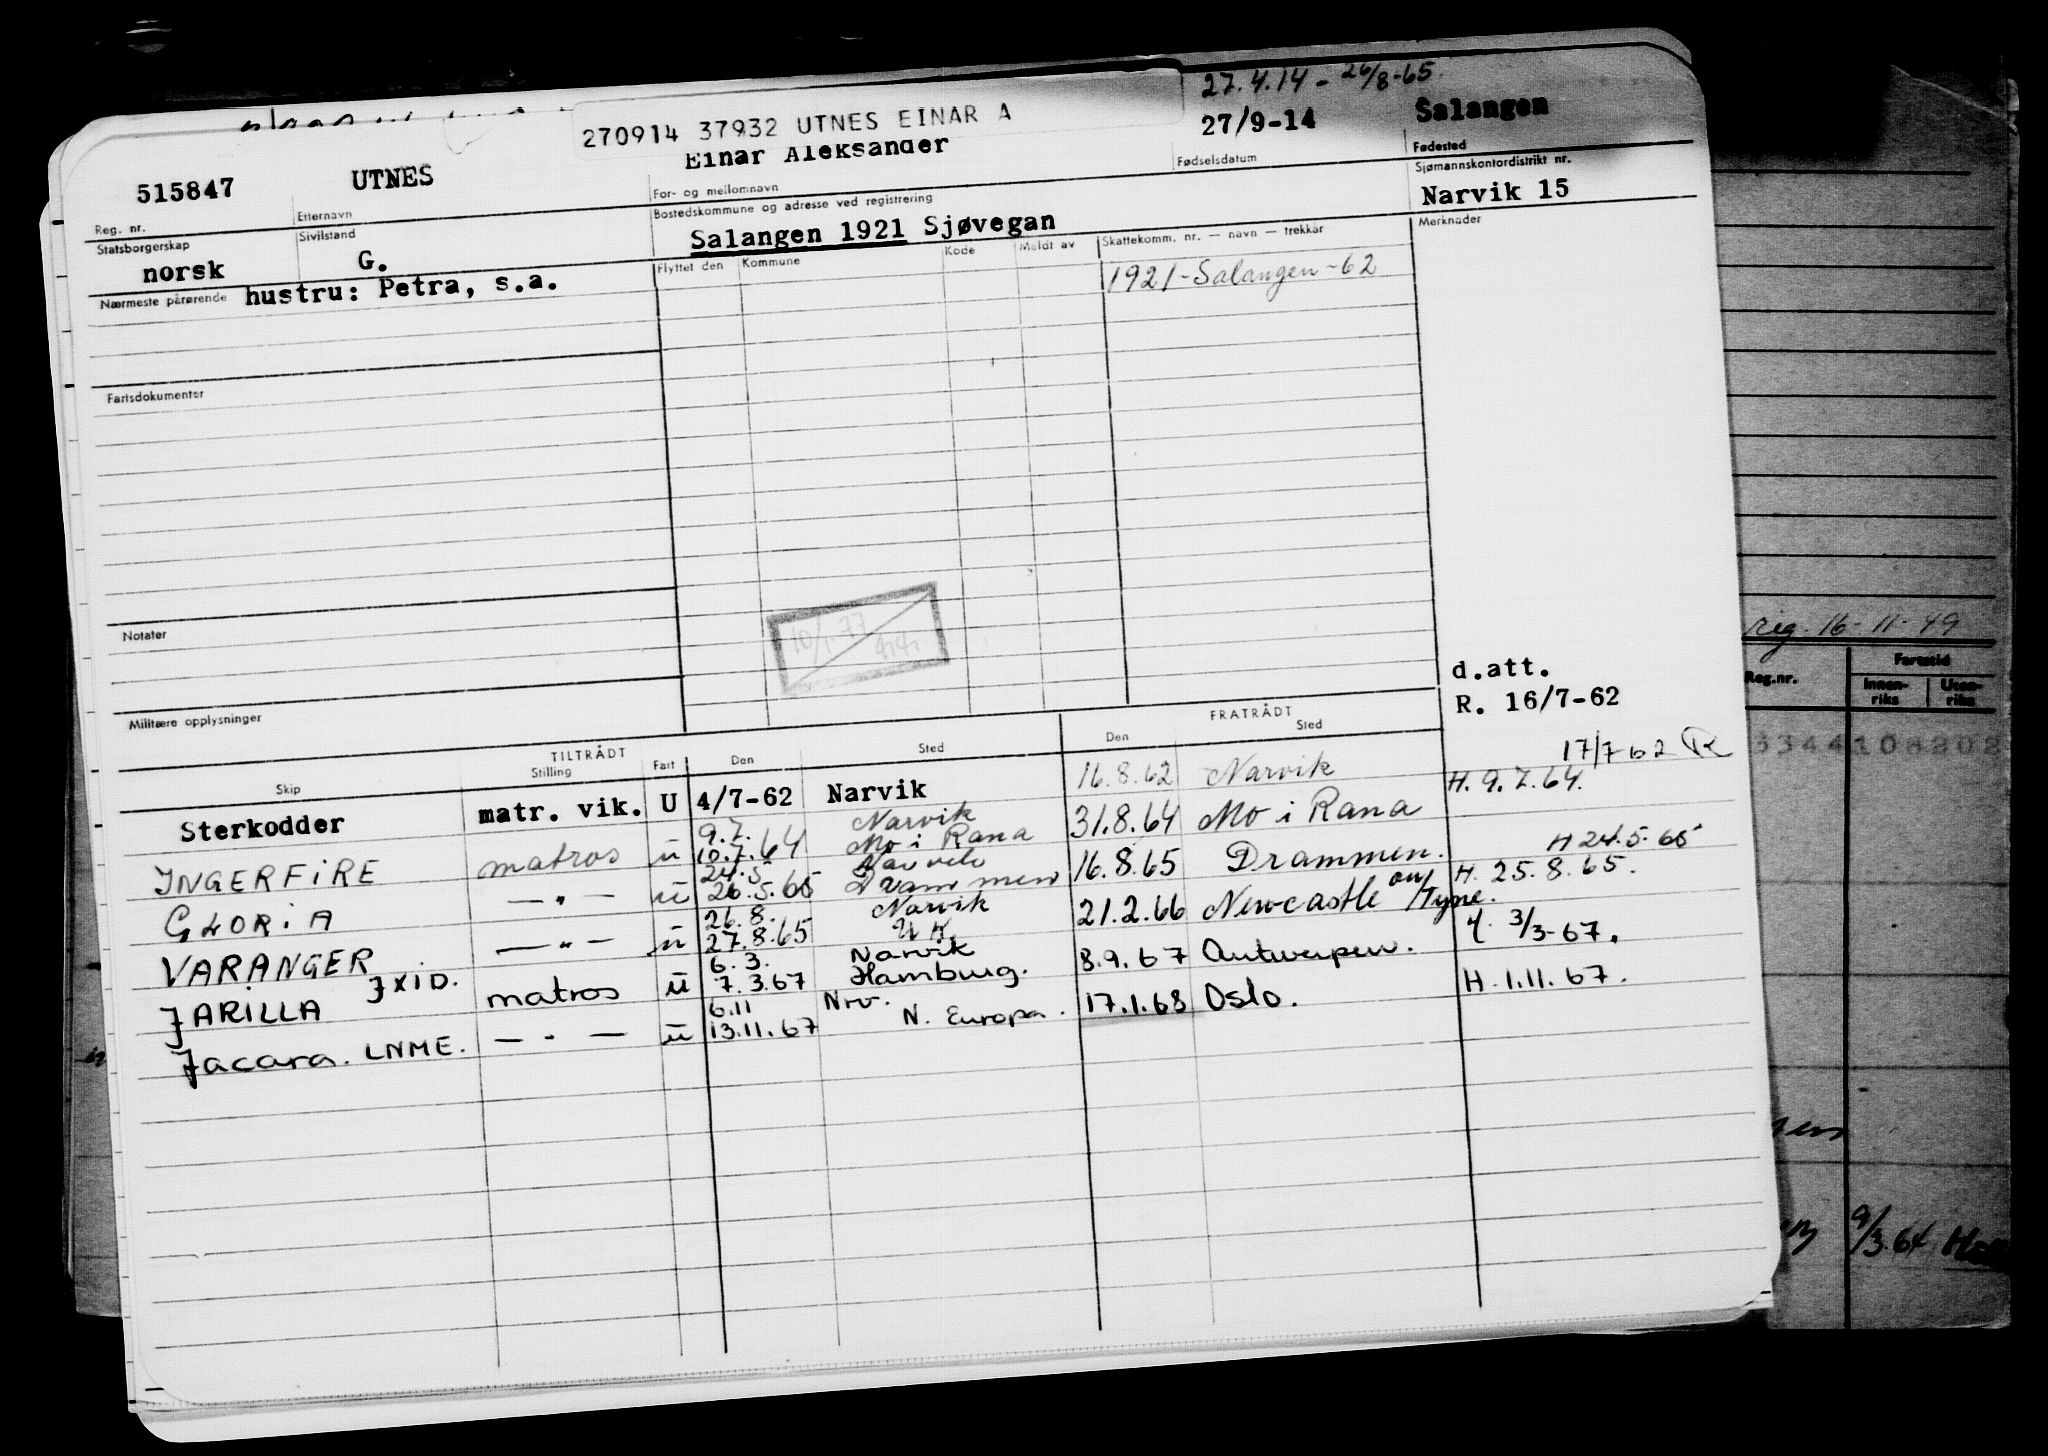 27.4.14 - 26/8-65.
270914 37932 UTNES EINAR A
27/9-14 Salangen
515847 UTNES Einar Aleksander
Fødselsdatum Fødested
Reg. nr. Etternavn For- og mellomnavn Sjømannskontordistrikt nr.
Narvik 15
Statsborgerskap Sivilstand Bostedskommune og adresse ved registrering Merknader
norsk G. Salangen 1921 Sjøvegan
Nærmeste pårørende hustru: Petra, s.a.
Flyttet den Kommune Kode Meldt av Skattekomm. nr. — navn — trekkår
1921-Salangen-62
Fartsdokumenter
Notater
10/1 77
rig. 16-11-49
Reg.nr. Fartstid
Innen-riks Uten-riks
3344108202
d.att.
R. 16/7-62
Militære opplysninger
TILTRÅDT FRATRÅDT
Skip Stilling Fart Den Sted Den Sted
17/7 62 R
Sterkodder matr. vik. U 4/7-62 Narvik 16.8.62 Narvik
H. 9.7.64.
9.7. Narvik
INGERFIRE matros u 10.7.64 Mo i Rana 31.8.64 Mo i Rana
H 24.5.65
24.5 Narvik
GLORIA — " — u 26.5.65 Drammen 16.8.65 Drammen.
H. 25.8.65.
26.8. Narvik
VARANGER — " — u 27.8.65 U.K. 21.2.66 Newcastle on/Tyne.
3/3-67.
6.3. Narvik
JARILLA JXID. matros u 7.3.67 Hamburg. 8.9.67 Antwerpen.
H. 1.11.67.
6.11 Nrv.
Jacara. LNME. — " — u 13.11.67 N. Europa. 17.1.68 Oslo.
9/3.64